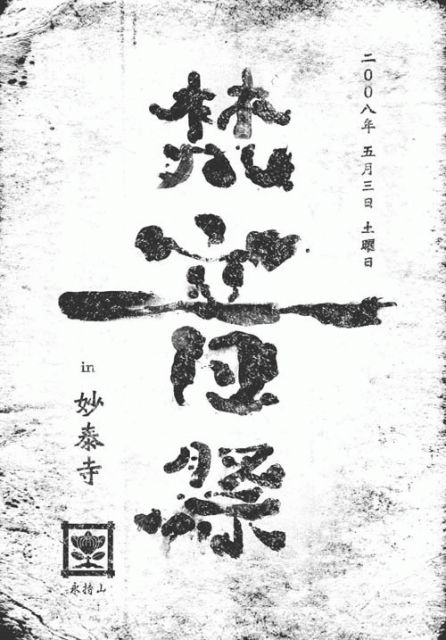 二〇〇八年 五月三日 土曜日
梵音祭
in 妙泰寺
永持山